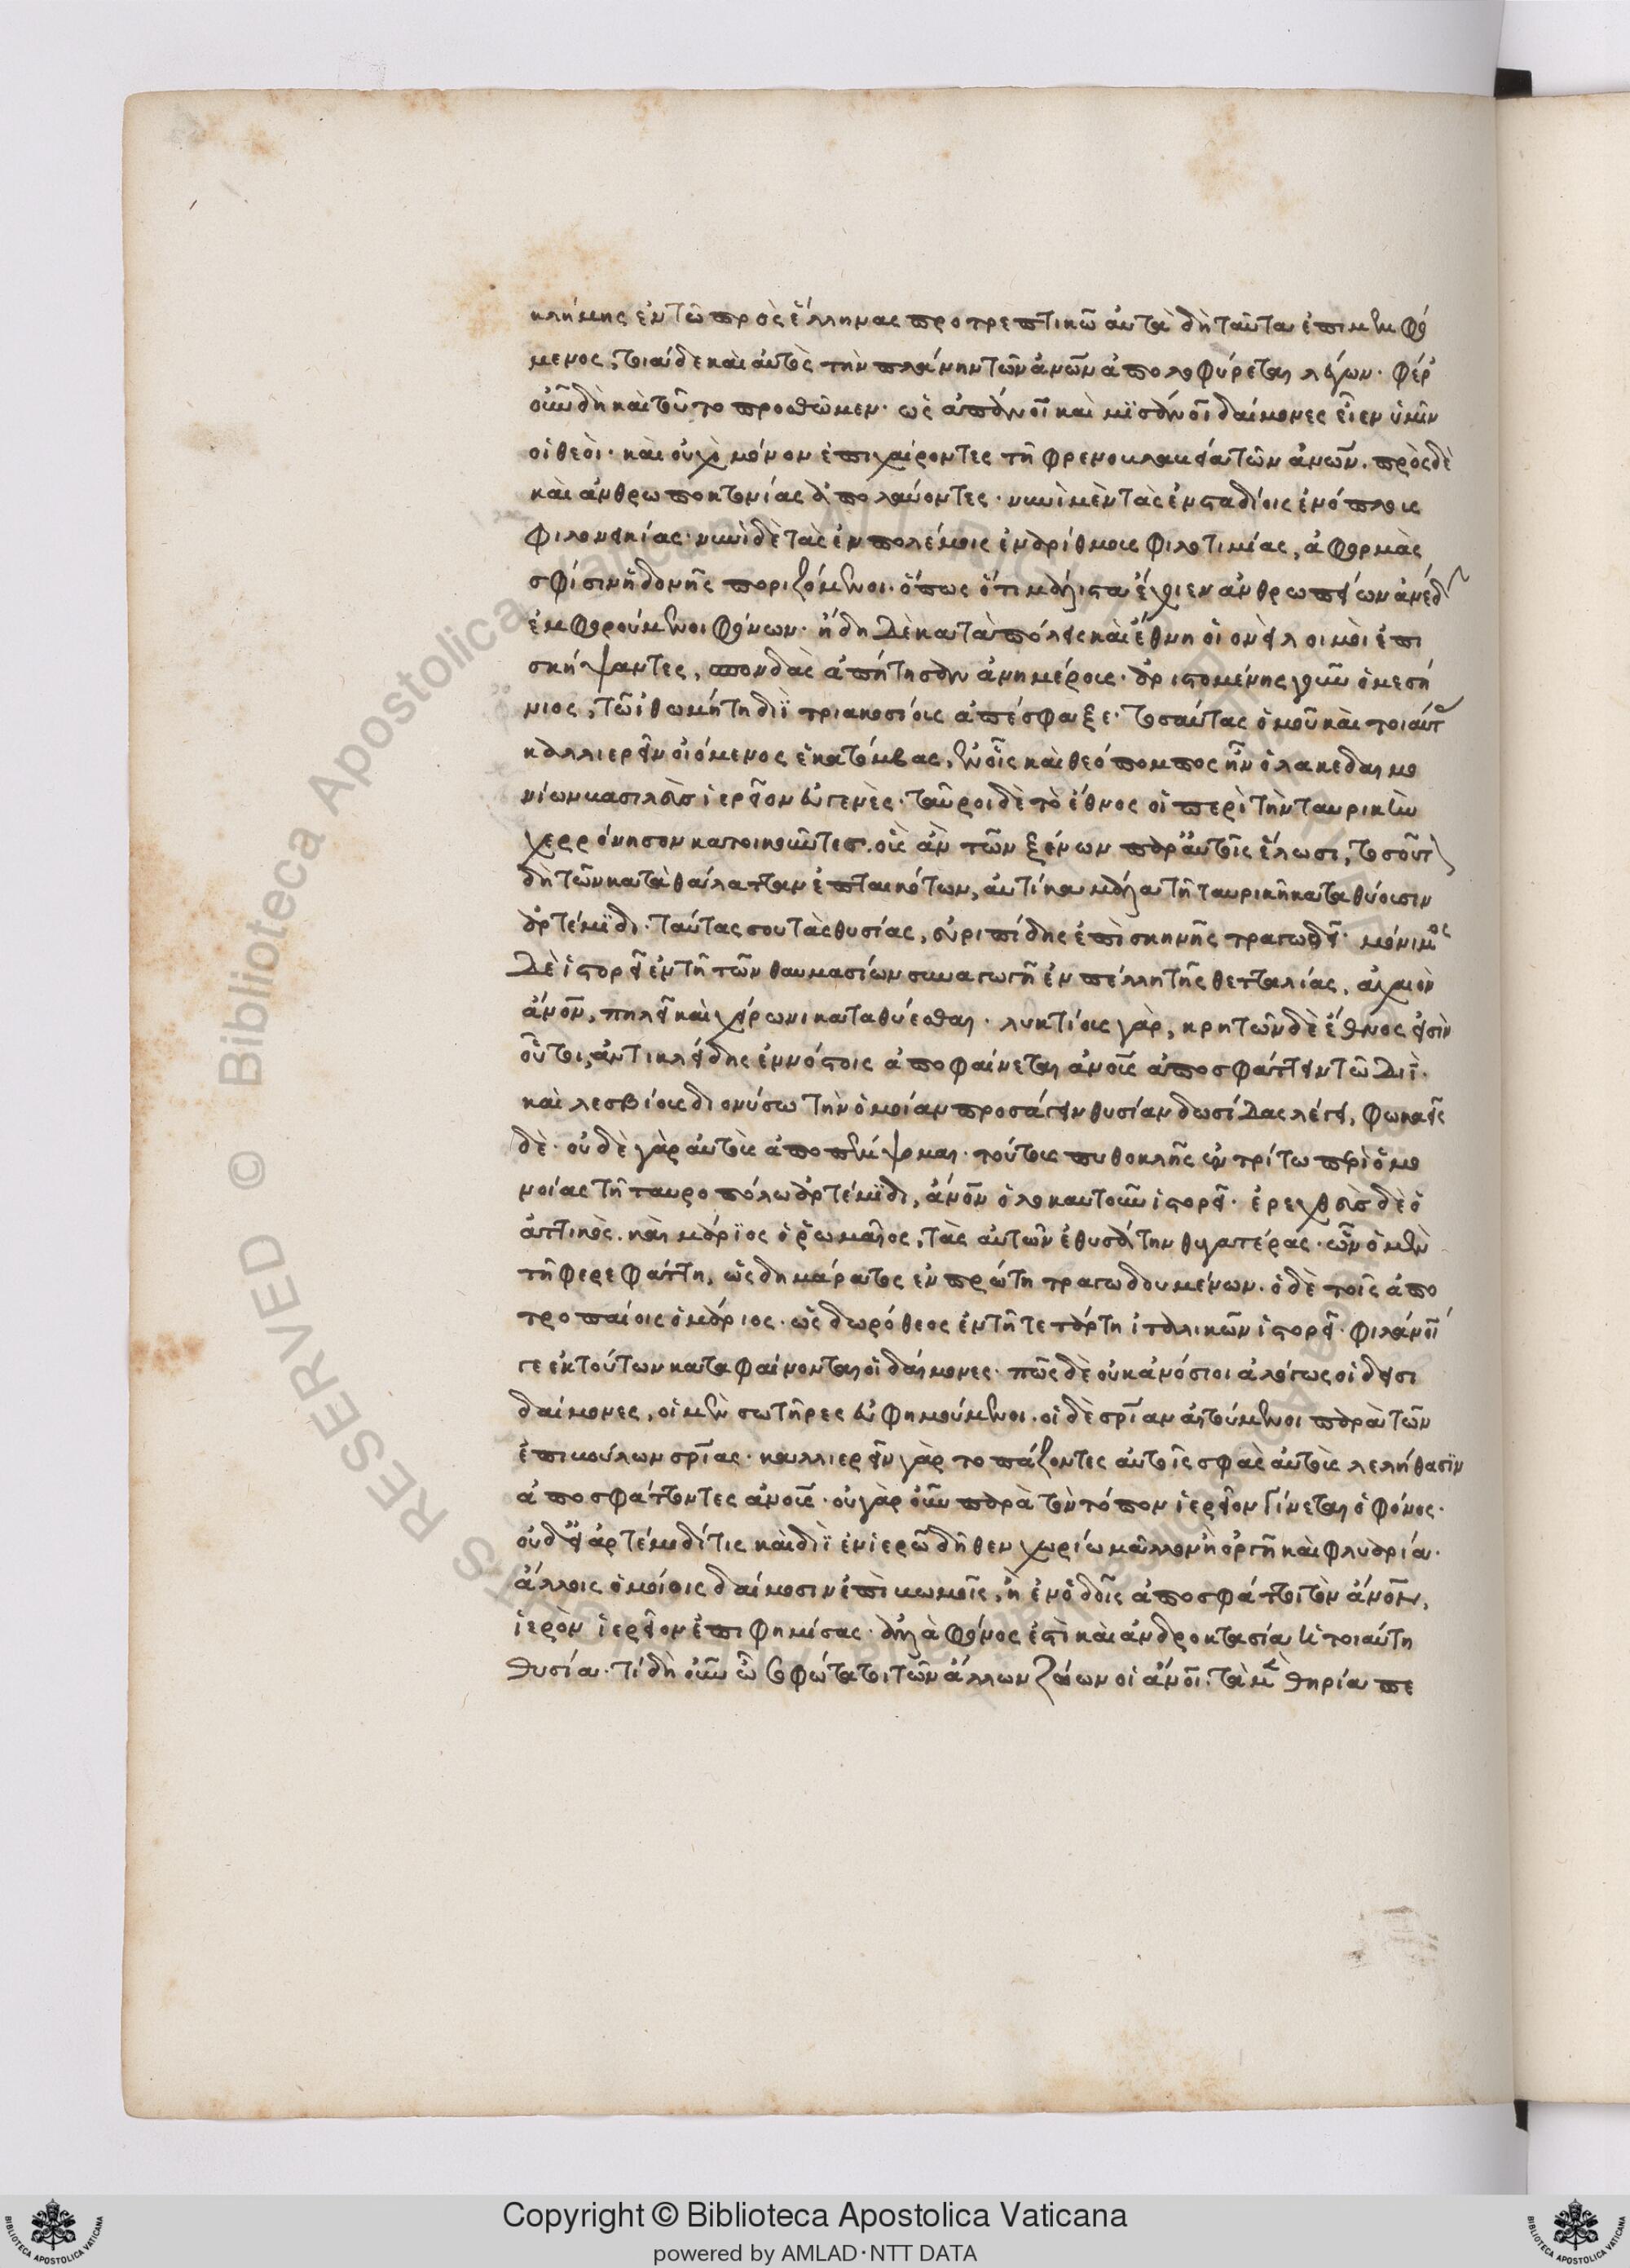 κλήμης ἐν τῶ πρὸς ἕλληνας προτρεπτικῶ αὐτὰ δὴ ταῦτα ἐπιμεμφό
μενος, τοιαῦδε καὶ αὐτὸς τὴν πλάνην τῶν ἀνῶν ἀπολοφύρεται λέγων· φέρ
οὖν δὴ καὶ τοῦτο προσθῶμεν· ὡς ἀπάνοι καὶ μισάνοι δαίμονες εἶεν ὑμῖν
οἱ θεοὶ· καὶ οὐχὶ μόνον ἐπιχαίροντες τῆ φρενοβλαβεία τῶν ἀνων. πρὸς δὲ
καὶ ἀνθρωποκτονίας ἀπολαύοντες· νυνὶ μὲν τὰς ἐν σταδίοις ἐνόπλοις
φιλονεικίας· νυνὶ δὲ τὰς ἐν πολέμοις ἐναρίθμοις φιλοτιμίας, ἀφορμὰς
σφίσιν ἡδονῆς ποριζόμενοι· ὅπως ὅτι μάλιστα ἔχοιεν ἀνθρωπείων ἀνέδ
ἐμφορούμενοι φόνων· ἤδη δὲ κατὰ πόλεις καὶ ἔθνη οἱονεὶ λοιμοὶ ἐπι
σκήψαντες, σπονδὰς ἀπήτησαν ἀνημέροις· ἀριστομένης γοῦν ὁ μεσή
νιος, τῶ ἰθωμήτη διῒ τριακοσίοις ἀπέσφαξε· τοσαύτας ὁμοῦ καὶ τοιαύτ
καλλιερεῖν οἰόμενος ἑκατόμβας, ἐν οἷς καὶ θεόπομπος ἦν ὁ λακεδαιμο
νίων βασιλεὺς ἱερεῖον εὐγενὲς· ταῦροι δὲ τὸ ἔθνος οἱ περὶ τὴν ταυρικὴν
χερρόνησον κατοικοῦντες. οὓς ἂν τῶν ξένων παρ' αὐτοῖς ἕλωσι, τοσοῦτ
δὴ τῶν κατὰ θάλατταν ἐπταικότων, αὐτίκα μάλα τῆ ταυρικῆ καταθύουσιν
ἀρτέμιδι· ταύτας σου τὰς θυσίας, εὐριπίδης ἐπὶ σκηνῆς τραγωδεῖ· μόνιμος
δὲ ἱστορεῖ ἐν τῆ τῶν θαυμασίων συναγωγῆ ἐν πέλλη τῆς θετταλίας, ἀχαιὸν
ἄνον, πηλεῖ καὶ χείρωνι καταθύεσθαι· λυκτίοις γὰρ, κρητῶν δὲ ἔθνος εἰσὶν
οὗτοι, ἀντικλείδης ἐν νόστοις ἀποφαίνεται ἀνοὺς ἀποσφάττειν τῶ διῒ·
καὶ λεσβίοις διονύσω τὴν ὁμοίαν προσάγειν θυσίαν δωσίδας λέγει, φωκαεῖς
δὲ· οὐδὲ γὰρ αὐτοὺς ἀποπέμψομαι· τούτοις πυθοκλῆς ἐν τρίτω περὶ ὁμο
νοίας τῆ ταυροπόλω ἀρτέμιδι, ἄνον ὁλοκαυτοῦν ἱστορεῖ· ἐρεχθεὺς δὲ ὁ
ἀττικὸς. καὶ μάριος ὁ ῥωμαῖος, τὰς αὐτῶν ἐθυσάτην θυγατέρας· ὧν ὁ μὲν
τῆ φερεφάττη, ὡς δημάρατος ἐν πρώτη τραγωδουμένων. ὁ δὲ τοῖς ἀπο
τροπαίοις ὁ μάριος· ὡς δωρόθεος ἐν τῆ τετάρτη ἰταλικῶν ἱστορεῖ· φιλάνοι
γε ἐκ τούτων καταφαίνονται οἱ δαίμονες· πῶς δὲ οὐκ ἀνόσιοι ἀλόγως οἱ δεισι
δαίμονες, οἱ μὲν σωτῆρες εὐφημούμενοι. οἱ δὲ σρίαν αἰτούμενοι παρὰ τῶν
ἐπιβούλων σρίας· καλλιερεῖν γὰρ τοπάζοντες αὐτοῖς σφᾶς αὐτοὺς λελήθασιν
ἀποσφάττοντες ἀνοὺς· οὐ γὰρ οὖν παρὰ τὸν τόπον ἱερεῖον γίνεται ὁ φόνος·
οὐδ' εἰ ἀρτέμιδί τις καὶ διῒ ἐν ἱερῶ δῆθεν χωρίω μᾶλλον ἢ ὀργῆ καὶ φλυαρία·
ἄλλοις ὁμοίοις δαίμοσιν ἐπὶ βωμοῖς, ἢ ἐν ὁδοῖς ἀποσφάττοι τὸν ἄνον,
ἱερὸν ἱερεῖον ἐπιφημίσας· ἀλλὰ φόνος ἐστὶ καὶ ἀνδροκτασία ἡ τοιαύτη
θυσία· τί δὴ οὖν ὦ σοφώτατοι τῶν ἄλλων ζώων οἱ ἄνοι. τὰ μὲν θηρία πε